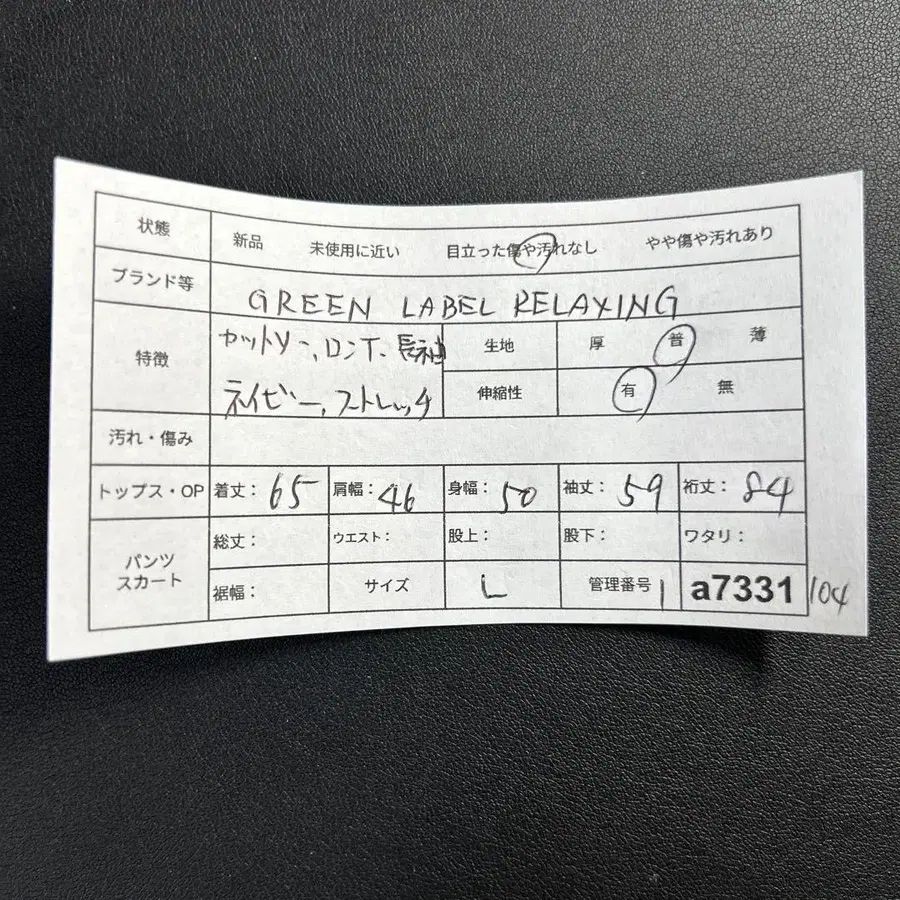 状態 新品 未使用に近い 目立った傷や汚れなし やや傷や汚れあり
ブランド等 GREEN LABEL RELAXING
特徴 カットソー、ロンT、長袖 生地 厚 普 薄
ネイビー、ストレッチ 伸縮性 有 無
汚れ・傷み
トップス・OP 着丈: 65 肩幅: 46 身幅: 50 袖丈: 59 裄丈: 84
パンツ スカート 総丈: ウエスト: 股上: 股下: ワタリ:
裾幅: サイズ L 管理番号 1 a7331 104